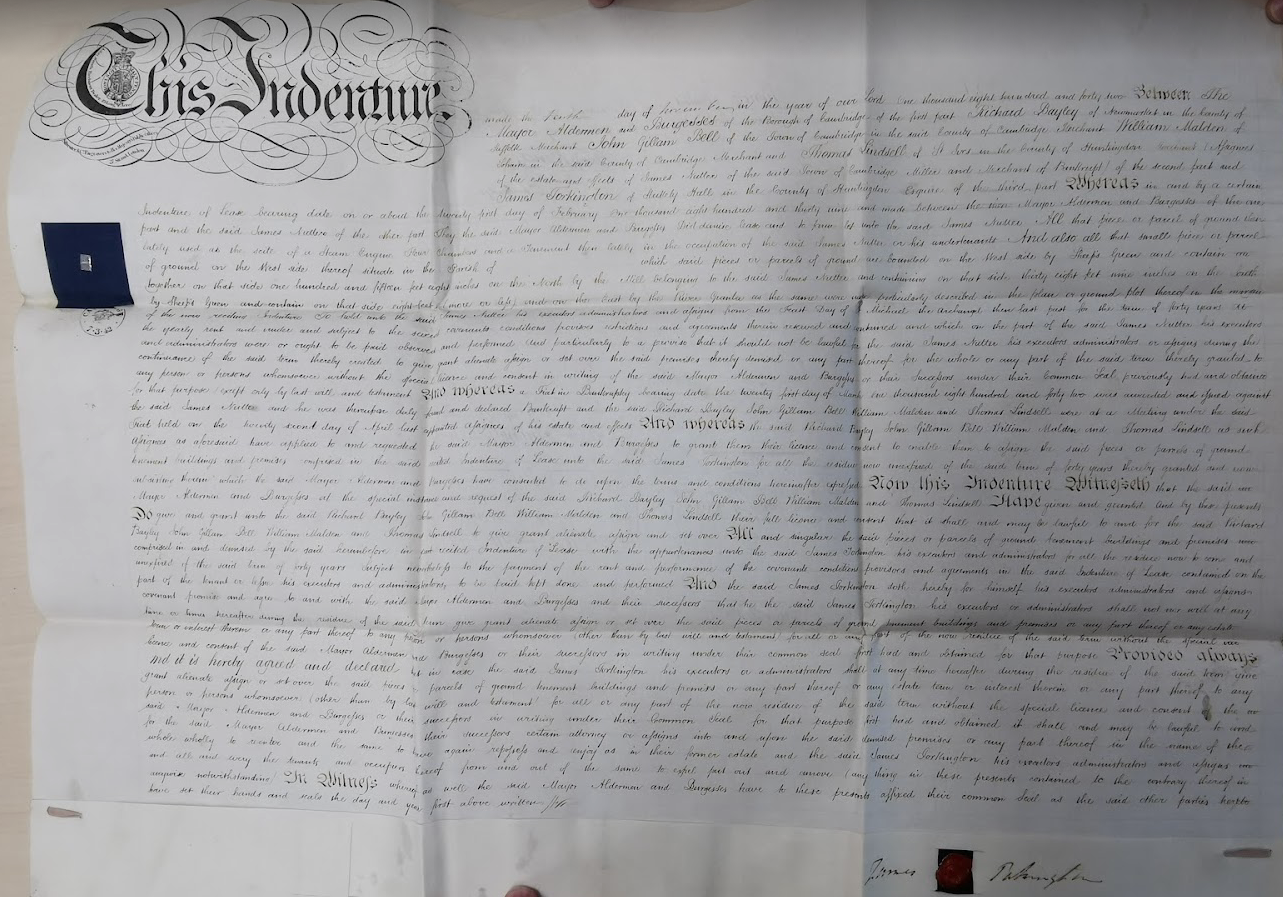 This Indenture
made the day of in the year of our Lord One thousand eight hundred and forty two Between The
Mayor Aldermen and Burgesses of the Borough of Cambridge of the first part Richard Bayley of Stowmarket in the County of
Suffolk Merchant John Gillam Bell of the Town of Cambridge in the said County of Cambridge Merchant William Malden of
in the said County of Cambridge Merchant and Thomas Lindsell of St Ives in the County of Huntingdon Merchant Assignees
of the estate and effects of James Nutter of the said Town of Cambridge Miller and Merchant a Bankrupt of the second part and
James Torkington of Stukely Hall in the County of Huntingdon Esquire of the third part Whereas in and by a certain
Indenture of Lease bearing date on or about the twenty first day of February One thousand eight hundred and thirty nine and made between the now Mayor Aldermen and Burgesses of the one
part and the said James Nutter of the other part They the said Mayor Aldermen and Burgesses Did demise lease and to farm let unto the said James Nutter All that piece or parcel of ground then
lately used as the scite of a Steam Engine Flour Chamber and a Tenement then lately in the occupation of the said James Nutter or his undertenants And also all that small piece or parcel
of ground on the West side thereof situate in the Parish of which said pieces or parcels of ground are bounded on the West side by Sheeps Green and contain
together on that side one hundred and fifteen feet eight inches on the North by the Mill belonging to the said James Nutter and containing on that side thirty eight feet nine inches on the South
by Sheeps Green and contain on that side eight feet more or less and on the East by the River Granta as the same were particularly described in the plan or ground plot thereof in the
of the now reciting Indenture To hold unto the said James Nutter his executors administrators and assigns from the Feast Day of Michael the Archangel then last past for the term of forty years at
the yearly rent and under and subject to the several covenants conditions provisos restrictions and agreements therein reserved and contained and which on the part of the said James Nutter his executors
and administrators were or ought to be paid observed and performed And particularly to a proviso that it should not be lawful for the said James Nutter his executors administrators or assigns during the
continuance of the said term thereby created to give grant alienate assign or set over the said premises thereby demised or any part thereof for the whole or any part of the said term thereby granted to
any person or persons whomsoever without the special licence and consent in writing of the said Mayor Aldermen and Burgesses or their Successors under their Common Seal previously had and obtained
for that purpose except only by last will and testament And whereas a Fiat in Bankruptcy bearing date the twenty first day of March one thousand eight hundred and forty two was awarded and issued against
the said James Nutter and he was thereupon duly found and declared Bankrupt and the said Richard Bayley John Gillam Bell William Malden and Thomas Lindsell were at a Meeting under the said
Fiat held on the twenty second day of April last appointed assignees of his estate and effects And whereas the said Richard Bayley John Gillam Bell William Malden and Thomas Lindsell as such
assignees as aforesaid have applied to and requested the said Mayor Aldermen and Burgesses to grant them their licence and consent to enable them to assign the said pieces or parcels of ground
tenement buildings and premises comprised in the said recited Indenture of Lease unto the said James Torkington for all the residue now unexpired of the said term of forty years thereby granted and now
subsisting therein which the said Mayor Aldermen and Burgesses have consented to do upon the terms and conditions hereinafter expressed Now this Indenture Witnesseth that the said
Mayor Aldermen and Burgesses at the special instance and request of the said Richard Bayley John Gillam Bell William Malden and Thomas Lindsell Have given and granted And by these presents
Do give and grant unto the said Richard Bayley John Gillam Bell William Malden and Thomas Lindsell their full licence and consent that it shall and may be lawful to and for the said Richard
Bayley John Gillam Bell William Malden and Thomas Lindsell to give grant alienate assign and set over All and singular the said pieces or parcels of ground tenement buildings and premises
comprised in and demised by the said hereinbefore in part recited Indenture of Lease with the appurtenances unto the said James Torkington his executors and administrators for all the residue now to come and
unexpired of the said term of forty years subject nevertheless to the payment of the rent and performance of the covenants conditions provisoes and agreements in the said Indenture of Lease contained on the
part of the tenant or lessee his executors and administrators to be paid kept done and performed And the said James Torkington doth hereby for himself his executors administrators and assigns
covenant promise and agree to and with the said Mayor Aldermen and Burgesses and their successors that he the said James Torkington his executors or administrators shall not nor will at any
time or times hereafter during the residue of the said term give grant alienate assign or set over the said pieces or parcels of ground tenement buildings and premises or any part thereof or any estate
term or interest therein or any part thereof to any person or persons whomsoever (other than by last will and testament) for all or any part of the now residue of the said term without the special
licence and consent of the said Mayor Aldermen and Burgesses or their successors in writing under their common seal first had and obtained for that purpose Provided always
and it is hereby agreed and declared that in case the said James Torkington his executors or administrators shall at any time hereafter during the residue of the said term give
grant alienate assign or set over the said pieces or parcels of ground tenement buildings and premises or any part thereof or any estate term or interest therein or any part thereof to any
person or persons whomsoever (other than by last will and testament) for all or any part of the now residue of the said term without the special licence and consent of the
said Mayor Aldermen and Burgesses or their successors in writing under their Common Seal for that purpose first had and obtained it shall and may be lawful to and
for the said Mayor Aldermen and Burgesses their successors certain attorney or assigns into and upon the said demised premises or any part thereof in the name of the
whole wholly to reenter and the same to have again repossess and enjoy as in their former estate and the said James Torkington his executors administrators and assigns
and all and every the tenants and occupiers thereof from and out of the same to expel put out and amove (any thing in these presents contained to the contrary thereof in
anywise notwithstanding) In Witness whereof as well the said Mayor Aldermen and Burgesses have to these presents affixed their common Seal as the said other parties hereto
have set their hands and seals the day and year first above written
James Torkington